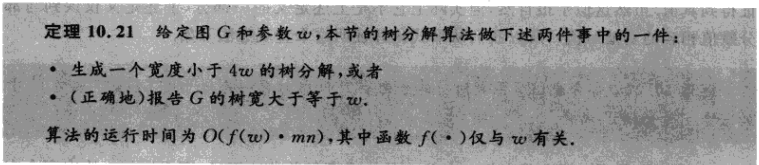 定理 10.21 给定图 G 和参数 w,本节的树分解算法做下述两件事中的一件:
• 生成一个宽度小于 4w 的树分解,或者
• (正确地)报告 G 的树宽大于等于 w.
算法的运行时间为 O(f(w)·mn),其中函数 f(·)仅与 w 有关.